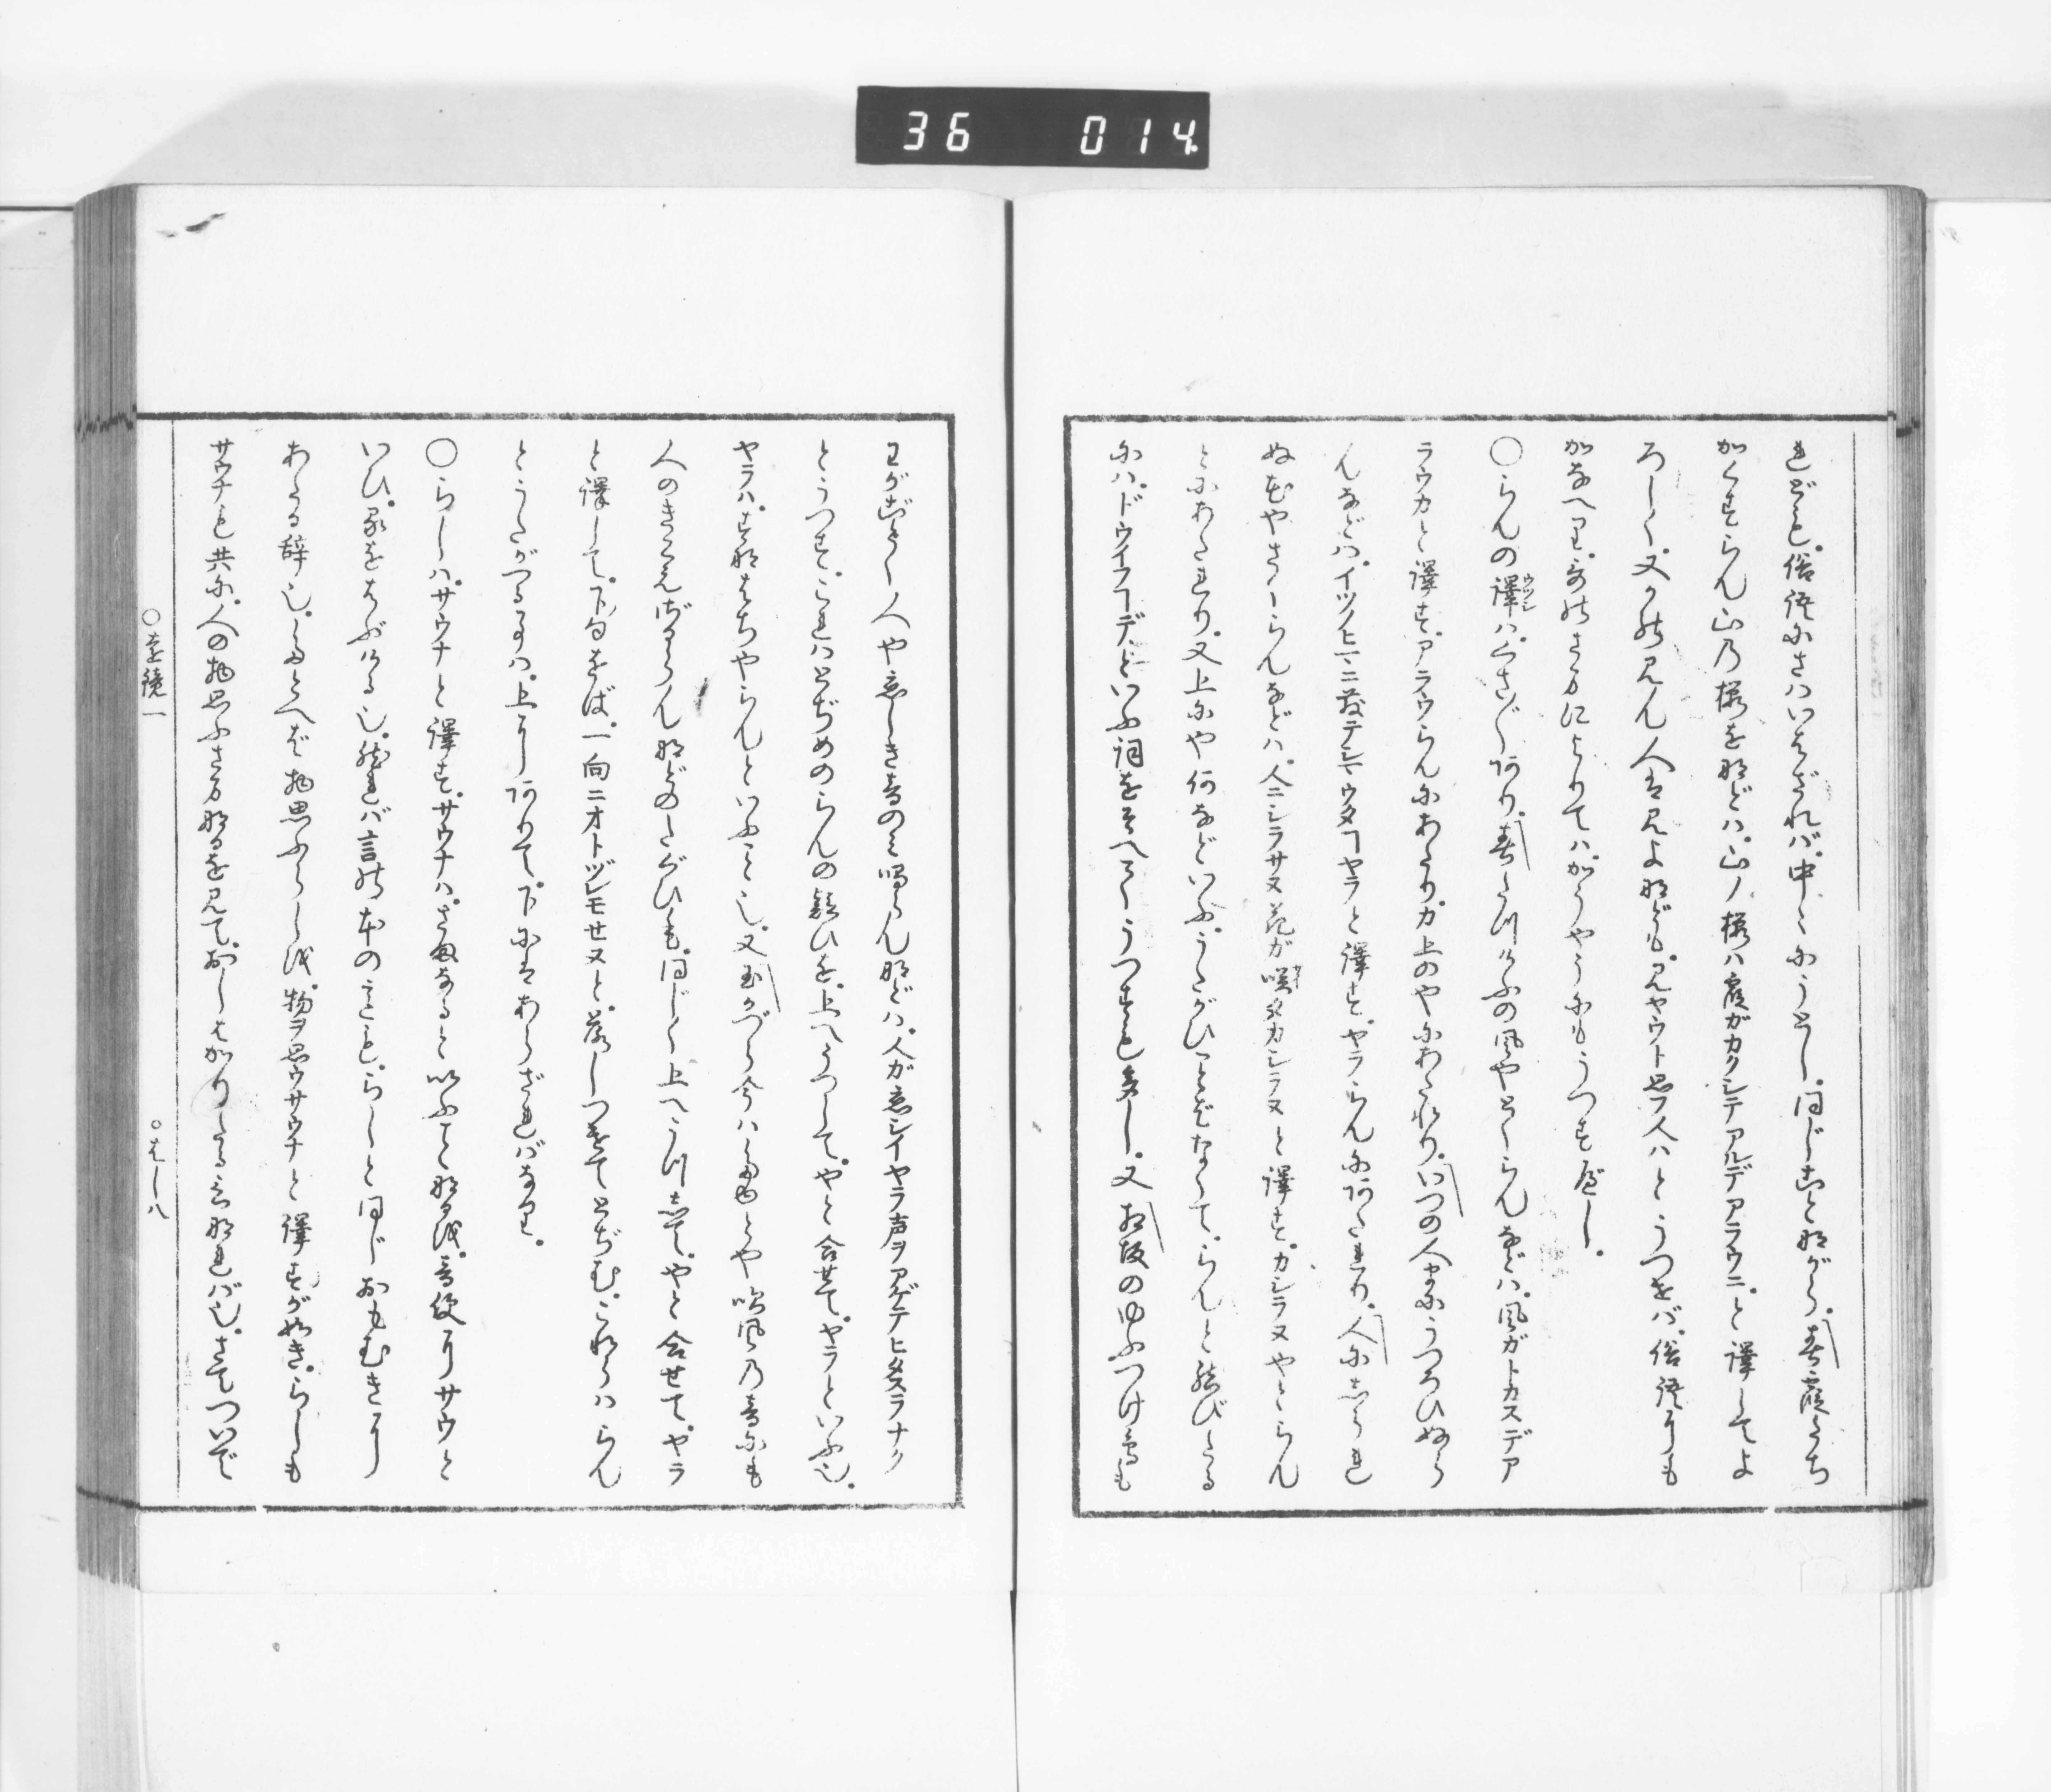 36 014
れども。俗語にさはいはざれば。中〻にうとし。同じことながら。春霞たち
かくすらん山の桜をなどハ。山ノ桜ハ霞ガカクシテアルデアラウニ。と譯してよ
ろしく。又かの見ん人は見よなども。見ヤウト思フ人ハとうつせバ。俗語にも
かなへり。歌のさまによりてハ。かうやうにもうつすべし。
○らんの譯ハ。くさ〴〵あり。春たつけふの風やとくらんなどハ。風ガトカスデア
ラウカと譯す。アラウらんにあたり。カ上のやにあたれり。いつの人まにうつろひぬら
んなどハ。イツノヒマニ散テシマウタヿヤラと譯す。ヤラらんにあたれり。人にしられ
ぬ花やさくらんなどハ。人ニシラサヌ花ガ咲タカシラヌと譯す。カシラヌやとらん
とにあたれり。又上にや何などいふ。うたがひことばなくて。らんと結びたる
にハ。ドウイフヿデといふ詞をそへてうつすも多し。又相坂のゆふつけ鳥も
わがごとく人や恋しき音のみ鳴らんなどハ。人ガ恋シイヤラ声ヲアゲテヒタスラナク
とうつす。これはとぢめのらんの疑ひを。上へうつして。やと合せて。ヤラといふ也。
ヤラハ。すなはちやらんといふこと也。又玉かづら今ハたゆとや吹風の音にも
人のきこえざるらんなどのたぐひも。同じく上へうつして。やと合せて。ヤラ
と譯して。下句をば。一向ニオトヅレモセヌと。落しつけてとぢむ。これらはらん
とうたがへる事ハ。上にありて。下にはあらざればなり。
○らしハ。サウナと譯す。サウナハ。さまなると いふことなるを。音便にサウと
いひ。るをはぶける也。然れバ言の本の意も。らしと同じおもむきに
あたる辞也。たとへば物思ふらしを。物ヲ思ウサウナと譯すが如き。らしも
サウナも共に。人の物思ふさまなるを見て。おしはかりたる言なれバ也。さてついで
○遠鏡一
○はし八